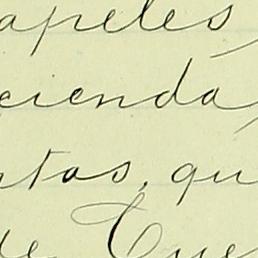 apeles
cienda,
ntas, qu
de Cue